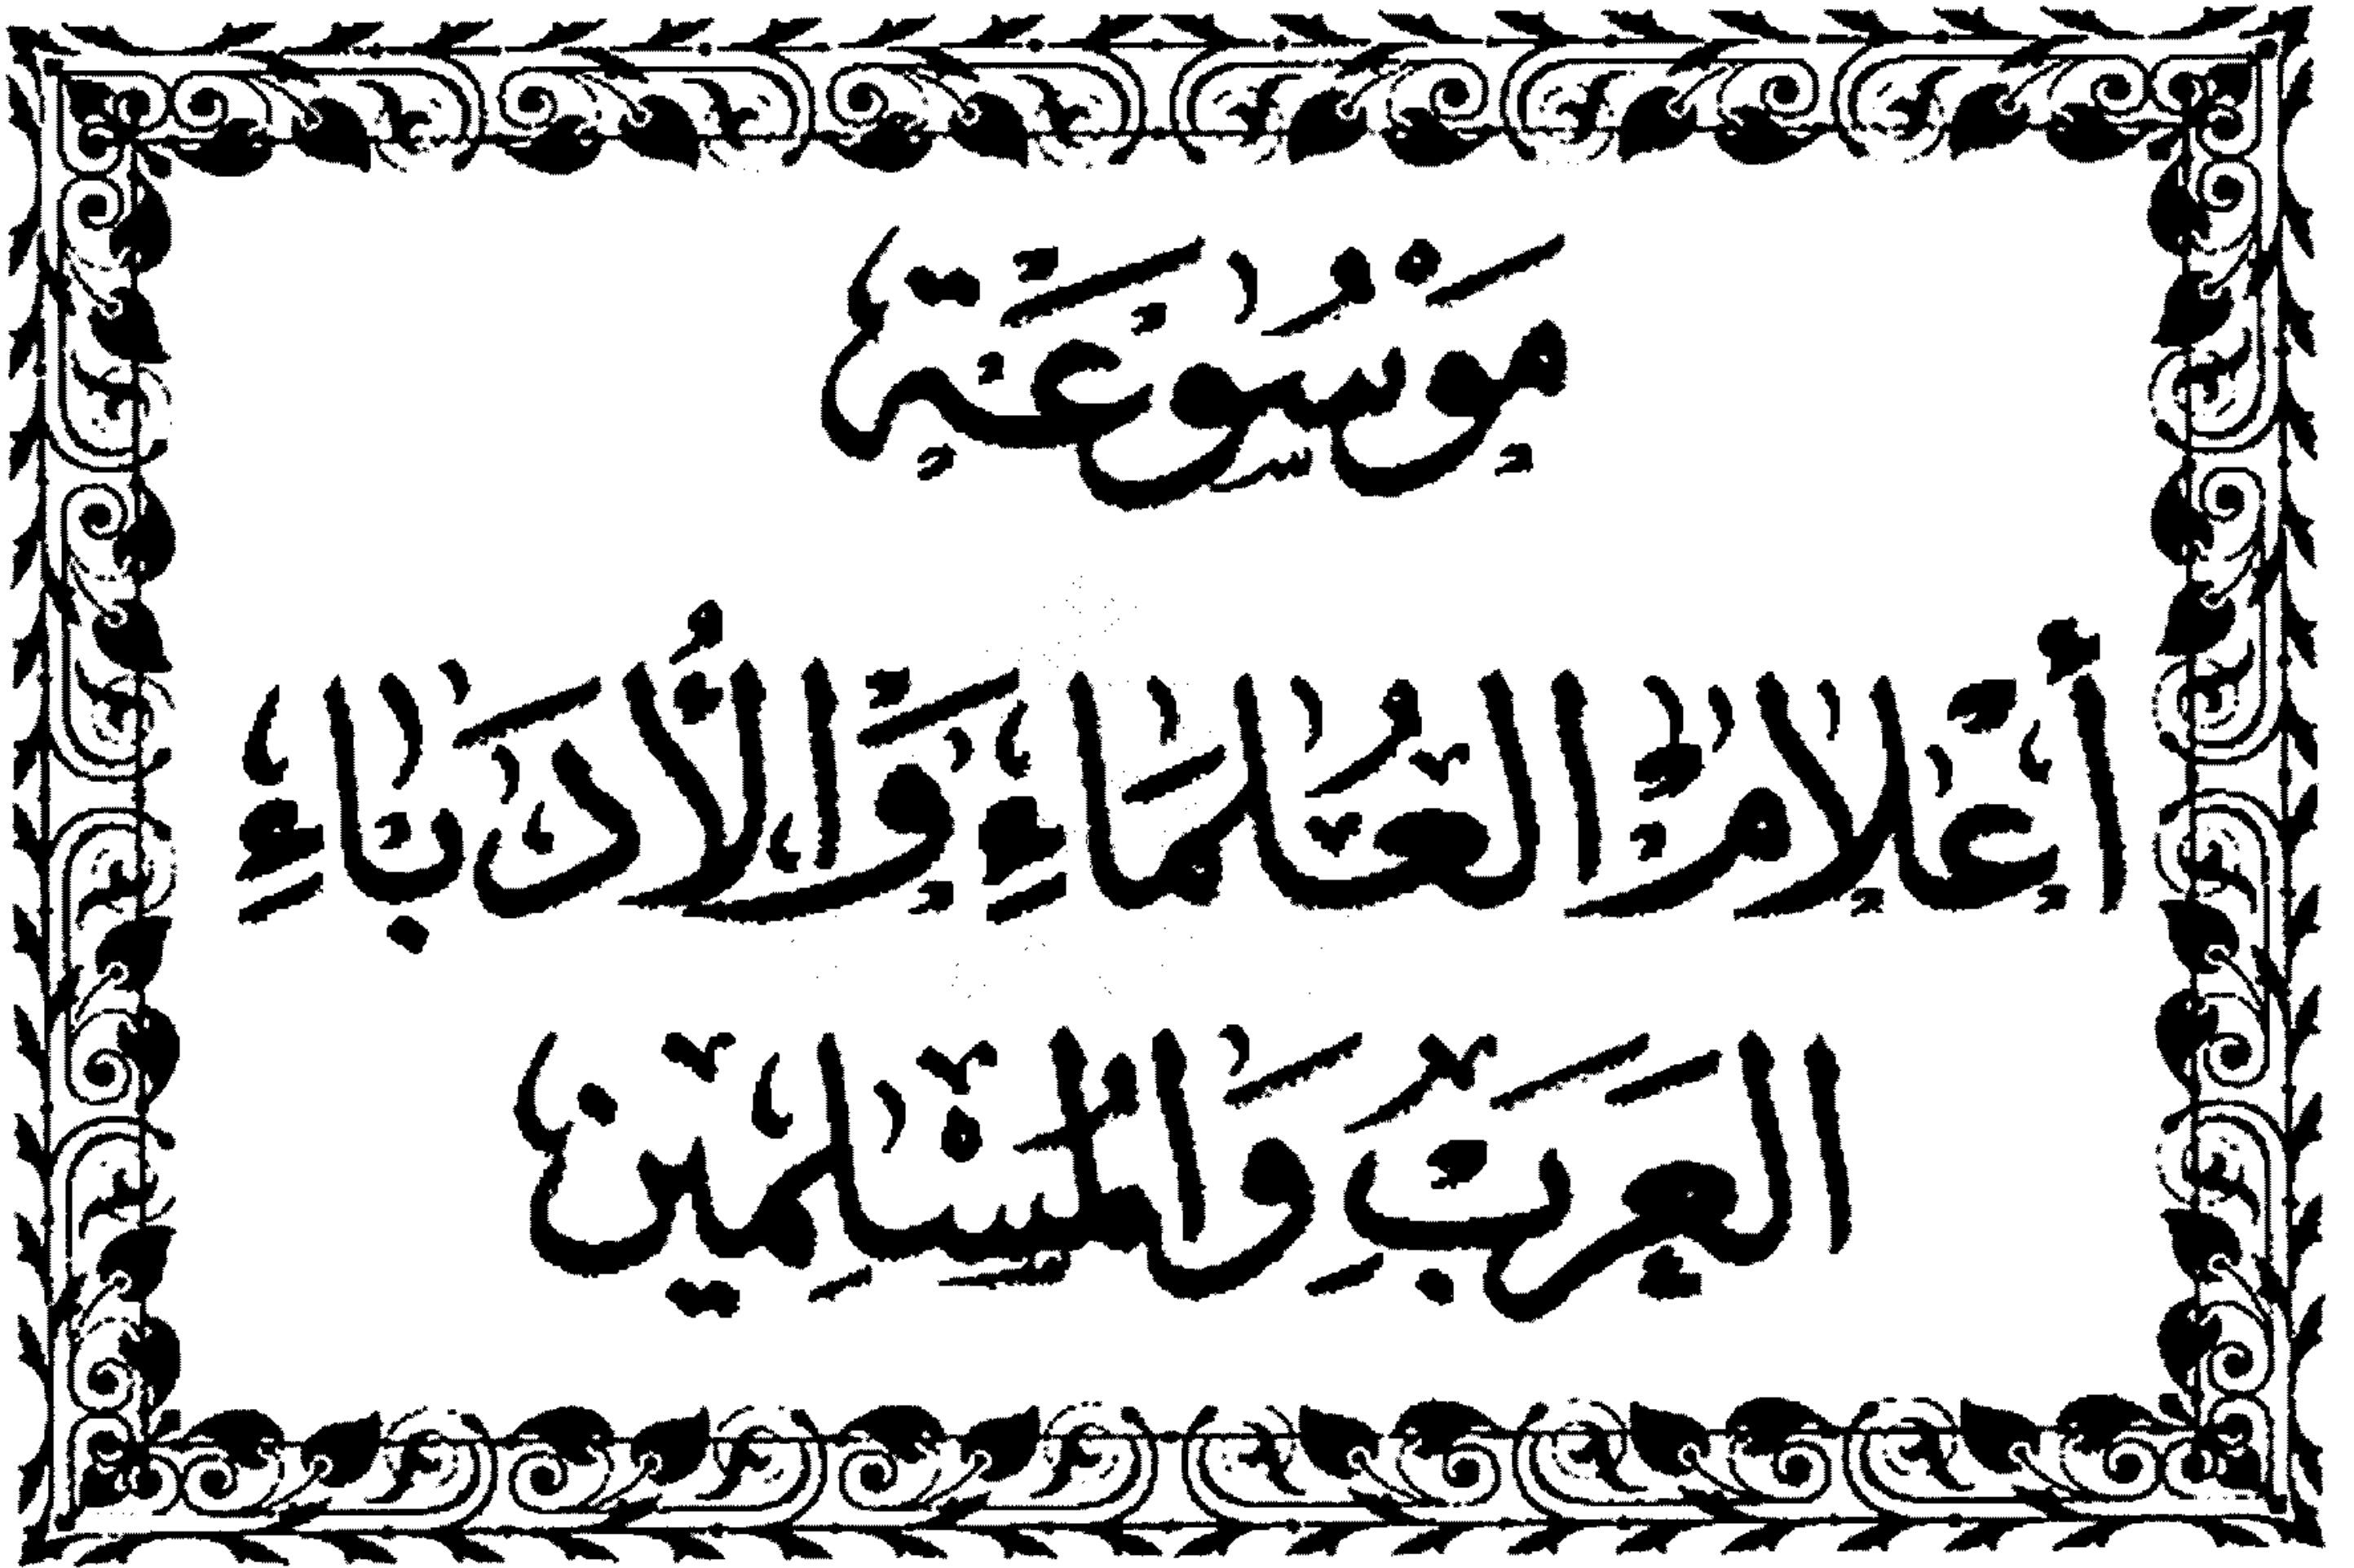 مَوْسُوعَة
أَعْلَامِ الْعُلَمَاءِ وَالْأُدَبَاءِ
الْعَرَبِ وَالْمُسْلِمِينَ